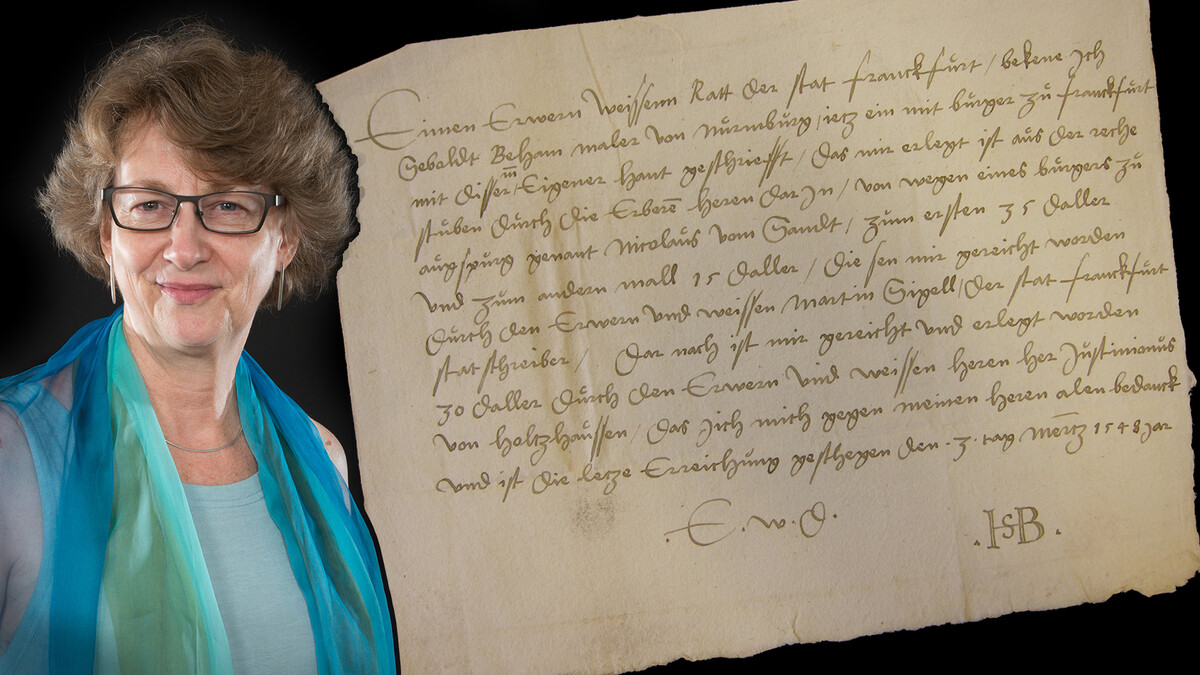 Einen Erwern Weissenn Ratt der stat franckfurt / bekene Jch
Sebeldt Beham maler von Nurmburg / ietz ein mit burger zu franckfurt
mit disser Eigener hant geschriefft / das mir erlegt ist aus der reche
stuben durch die Erberē heren dar In / von wegen eines burgers zu
augspurg genant Nicolaus vom Sandt / zum ersten 35 daller
und zum andern mall 15 daller / die sen mir gereicht worden
durch den Erwern und weissen Martin Sigell / der stat franckfurt
statschreiber / Dar nach ist mir gereicht und erlegt worden
30 daller durch den Erwern und weissen heren her Justinianus
von holtzhaussen / das Jich mich gegen meinen heren alen bedanck
und ist die letze Erreichung geschegen den . 3 . tag Mertz 1548 Jar
. E . w . D .
. HSB .